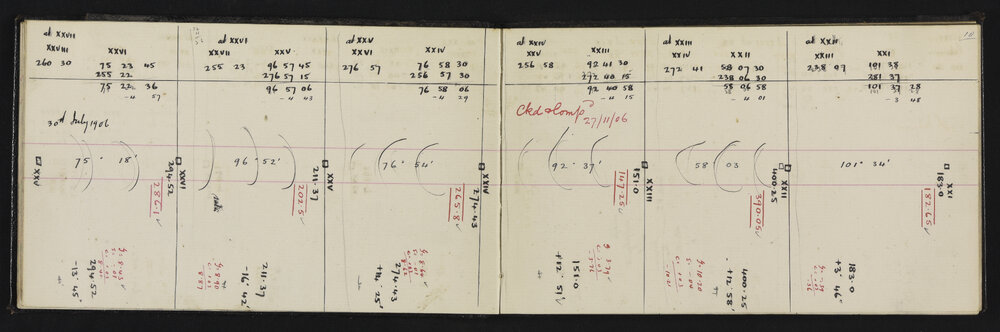 at XXVII
XXVIII XXVI
260 30 75 23 45
255 22
75 22 36
-4 57
30th July 1906
75° 18'
XXV
294.52
286.1
294.52
-13' 45"
at XXVI
XXVII XXV
255 23 96 57 45
276 57 15
96 57 06
-4 43
96° 52'
XXVI
211.37
202.5
211.37
-16' 42"
at XXV
XXVI XXIV
276 57 76 58 30
256 57 30
76 58 06
-4 29
76° 54'
XXV
274.43
265.8
274.43
+14' 55"
at XXIV
XXV XXIII
256 58 92 41 30
272 40 15
92 40 58
-4 15
Ckd & Comp
27/11/06
92° 37'
XXIV
151.0
147.25
151.0
+12' 51"
at XXIII
XXIV XXII
272 41 58 07 30
238 06 30
58 06 58
-4 01
58 03
XXIII
400.25
390.05
400.25
+12' 58"
at XXII
XXIII XXI
238 07 101 38
281 37
101 37 28
-3 48
101° 34'
XXII
183.0
182.65
183.0
+3' 46"
XXI
10